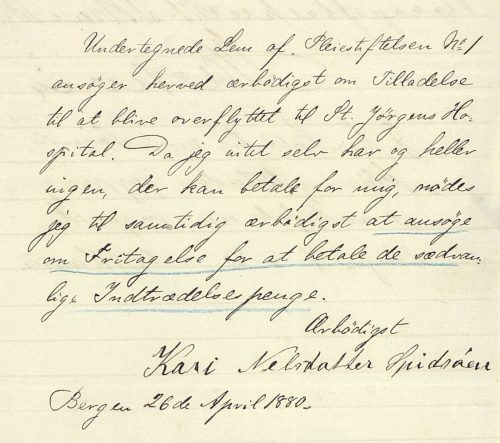 Undertegnede Lem af Pleiestiftelsen No 1
ansøger herved ærbødigst om Tilladelse
til at blive overflyttet til St. Jörgens Ho-
spital. Da jeg intet selv har og heller
ingen, der kan betale for mig, nödes
jeg til samtidig ærbödigst at ansöge
om Fritagelse for at betale de sædvan-
lige Indtrædelsespenge.
Ærbödigst
Kari Nelsdatter Spidsöen
Bergen 26de April 1880.